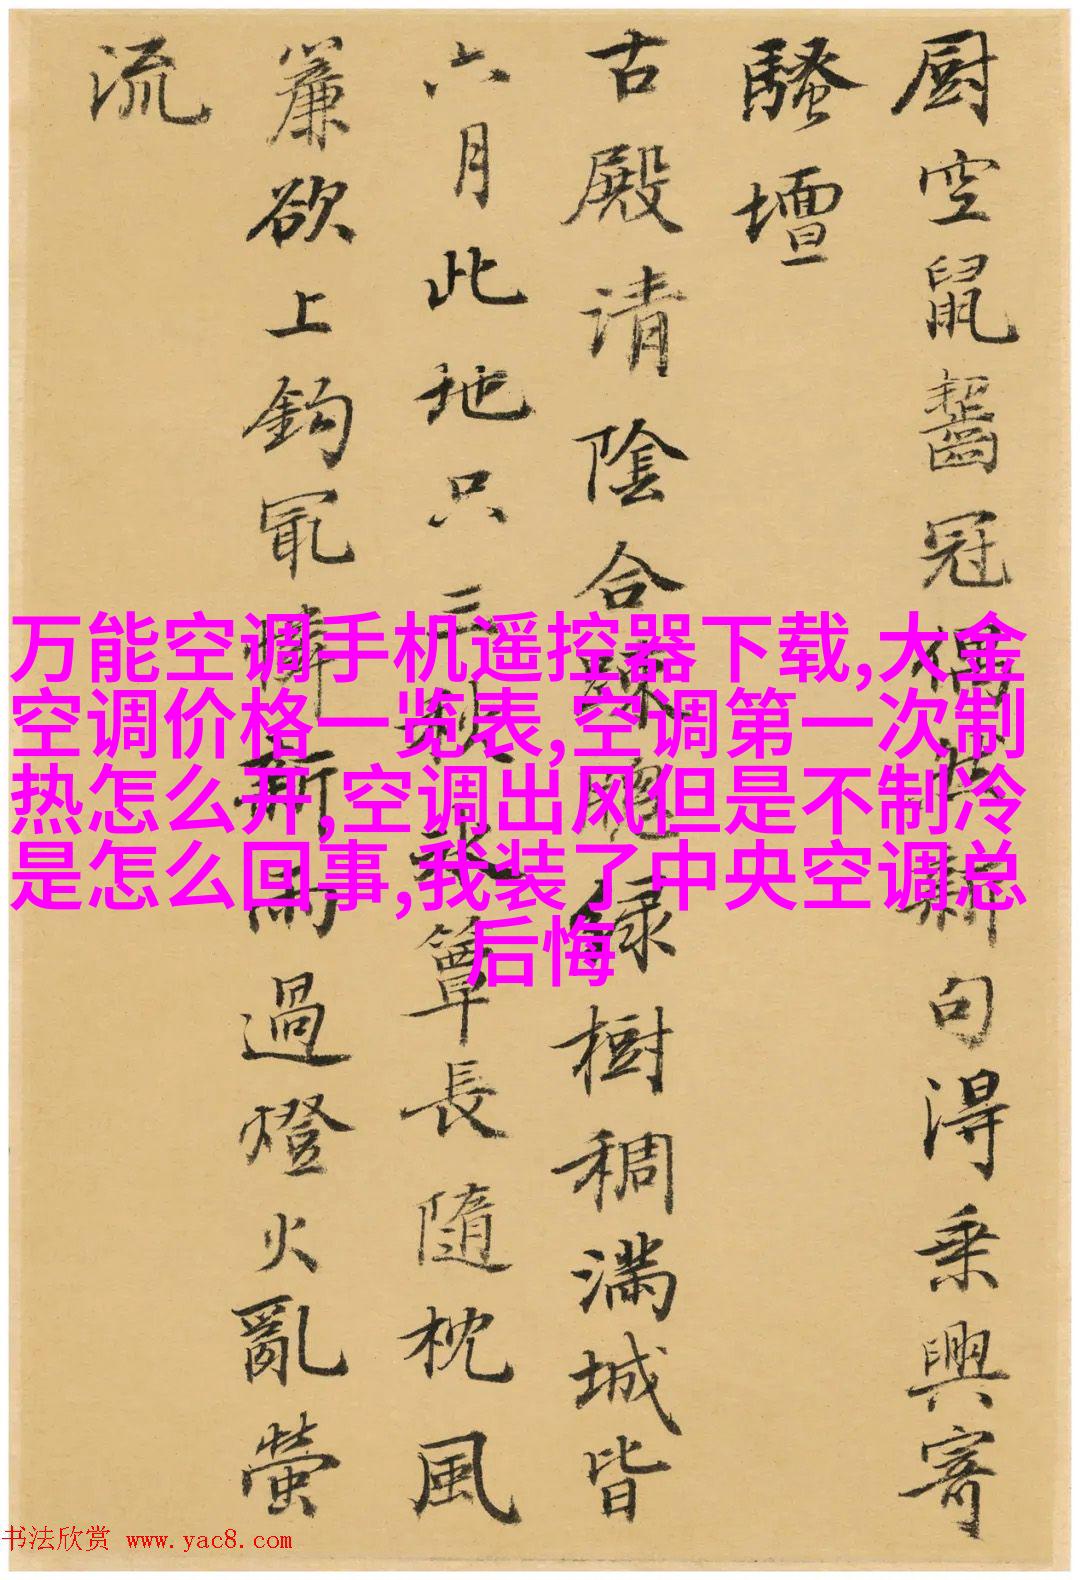 厨空鼠齧冠偶句得乘興寄
騷壇
古殿请陰合疎牕緑樹稠满城皆
六月此地只三秋氷簟長隨枕風
簾欲上鈎冣憐新雨過燈火亂螢
流
万能空调手机遥控器下载,大金
空调价格一览表,空调第一次制
热怎么开,空调出风但是不制冷
是怎么回事,我装了中央空调总
后悔
书法欣赏 www.yac8.com